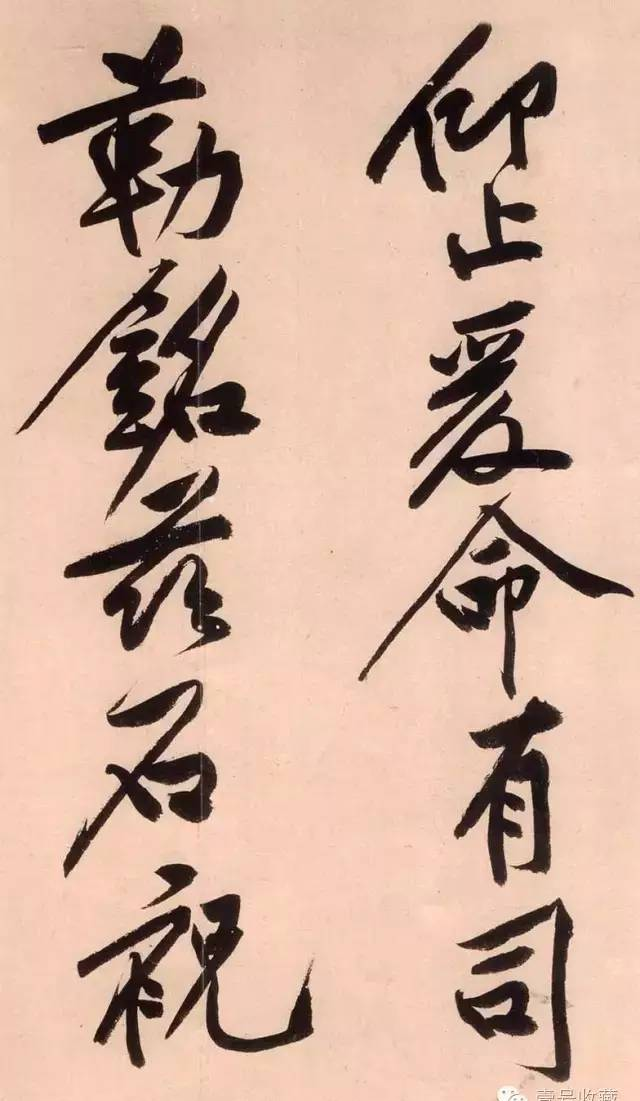 仰止爰命有司
勒銘茲石祝
壹号收藏